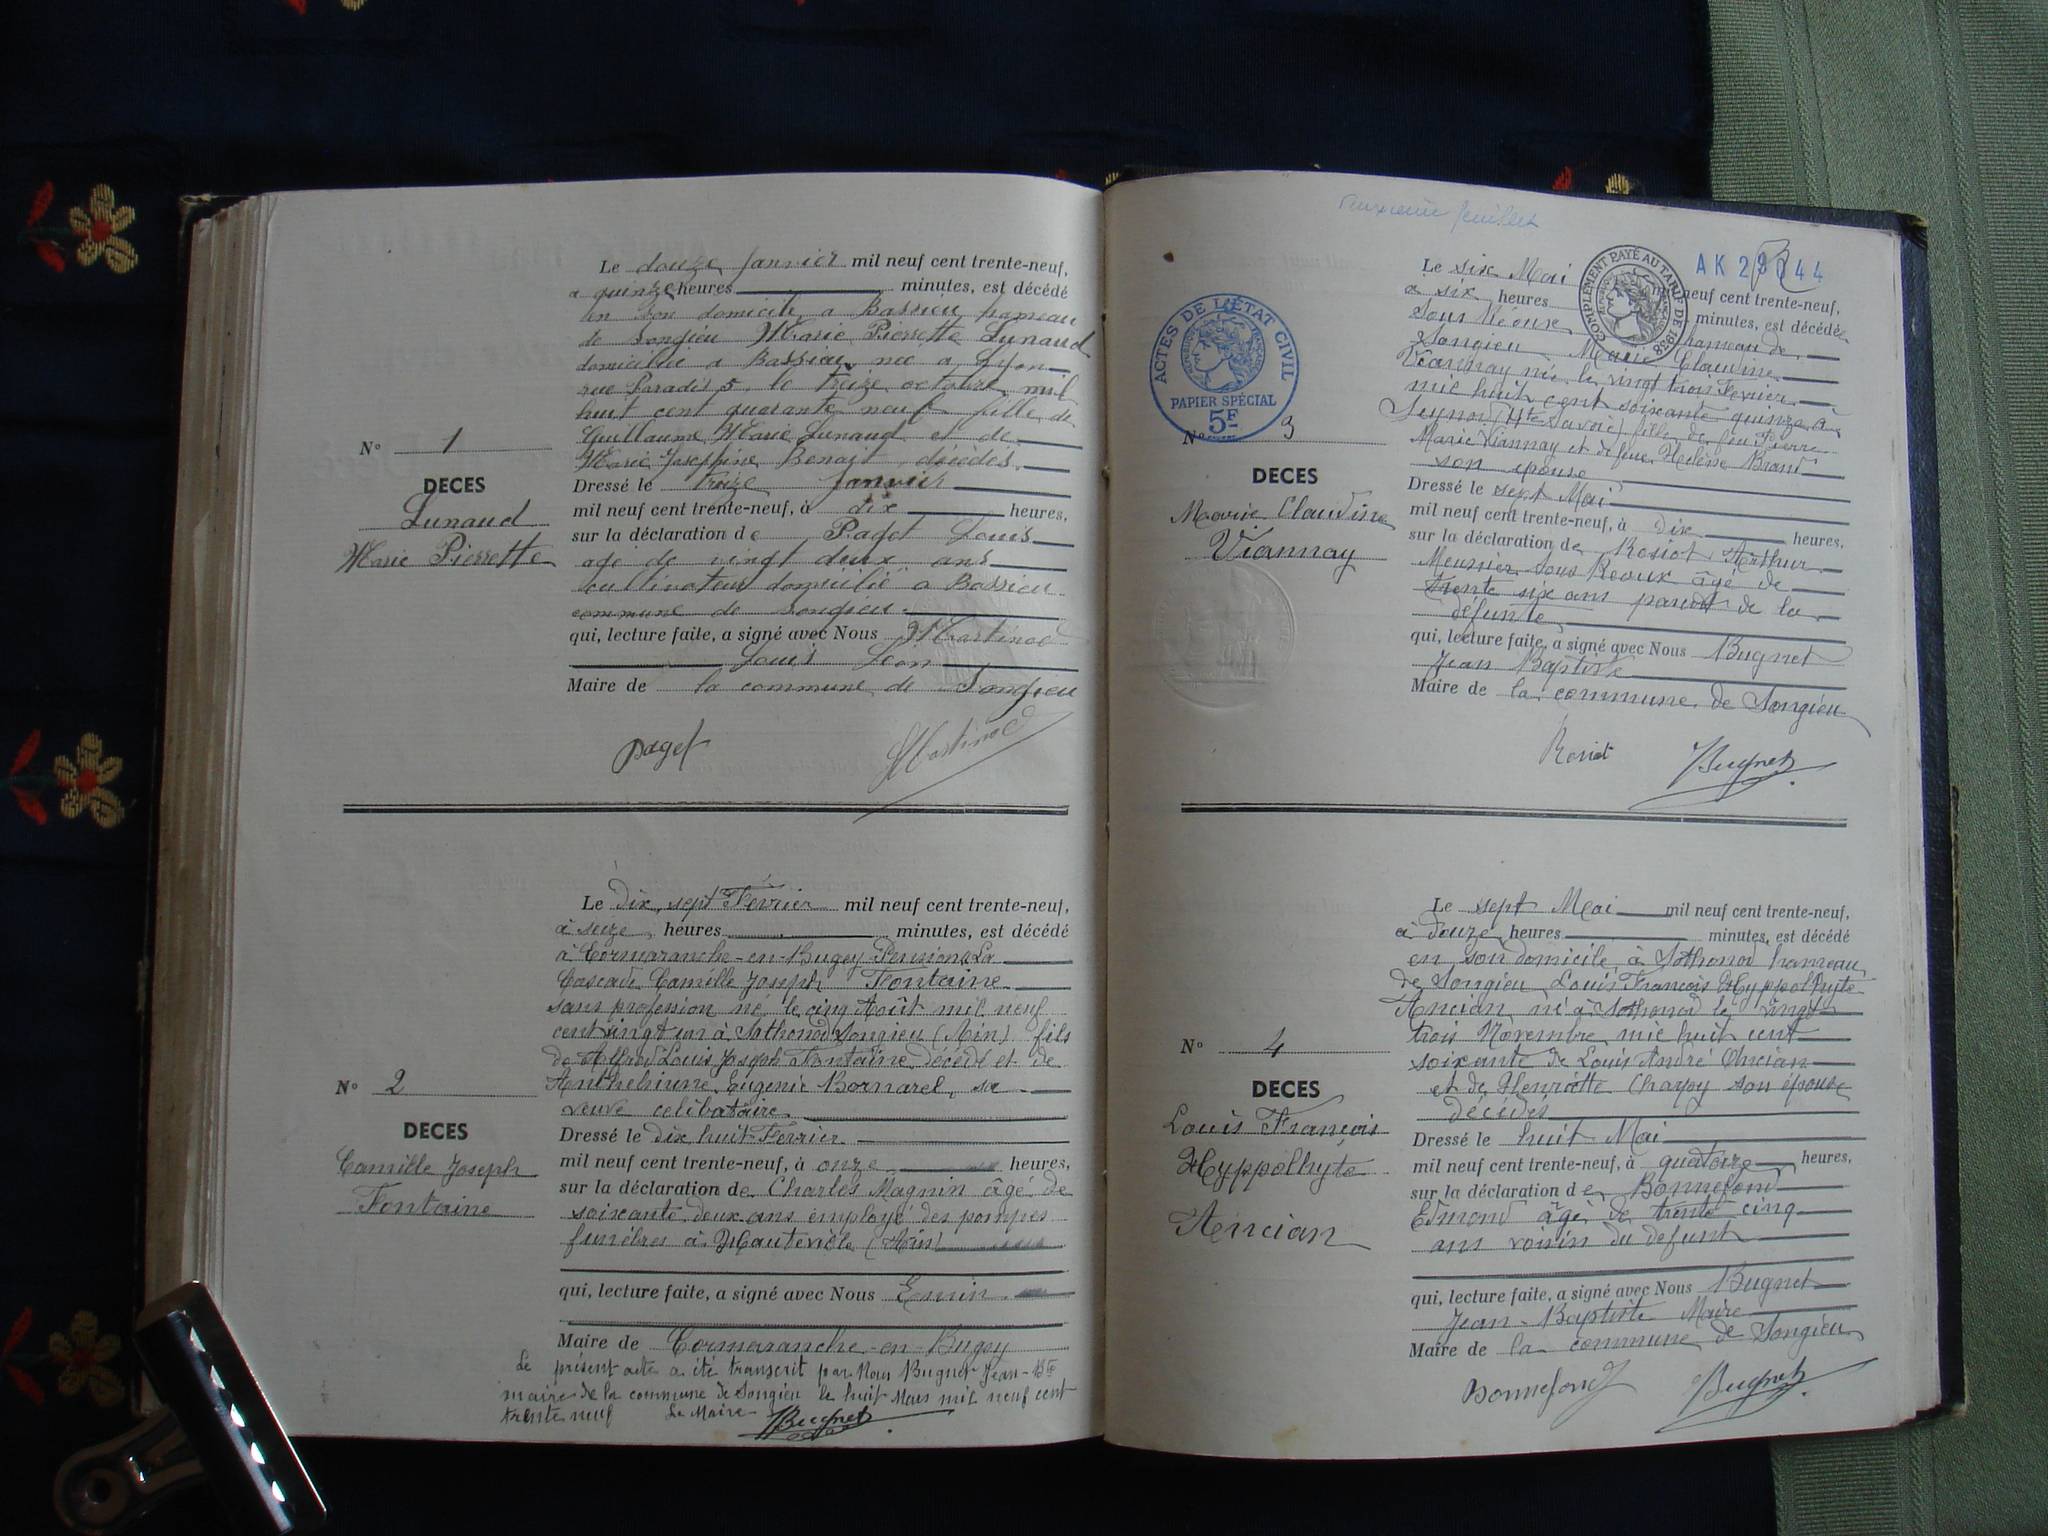 Le douze Janvier mil neuf cent trente-neuf,
a quinze heures minutes, est décédé
en son domicile a Bassieu hameau
de Songieu Marie Pierrette Lunaud
domiciliée a Bassieu née a Lyon
rue Paradis 5, le treize octobre mil
huit cent quarante neuf fille de
Guillaume Marie Lunaud et de
Marie Josephine Benoit décédés.
N° 1
DECES
Lunaud
Marie Pierrette
Dressé le treize Janvier
mil neuf cent trente-neuf, à dix heures,
sur la déclaration de Paget Louis
agé de vingt deux ans
cultivateur domicilié a Bassieu
commune de Songieu.
qui, lecture faite, a signé avec Nous Martinod
Louis Léon
Maire de la commune de Songieu
Paget Martinod
Le dix sept Fevrier mil neuf cent trente-neuf,
à seize heures minutes, est décédé
à Cormaranche-en-Bugey Pension La
Cascade Camille Joseph Fontaine
sans profession né le cinq Août mil neuf
cent vingt un à Sothonod Songieu (Ain) fils
de Alfred Louis Joseph Fontaine décédé et de
Anthelmine Eugenie Bornarel, sa
veuve celibataire.
N° 2
DECES
Camille Joseph
Fontaine
Dressé le dix huit Fevrier
mil neuf cent trente-neuf, à onze heures,
sur la déclaration de Charles Magnin âgé de
soixante deux ans employé des pompes
funèbres à Hauteville (Ain)
qui, lecture faite, a signé avec Nous Emin
Maire de Cormaranche-en-Bugey
Le présent acte a été transcrit par Nous Bugnet Jean-Bte
maire de la commune de Songieu le huit Mars mil neuf cent
trente neuf Le Maire Bugnet
feuillet
AK 29 44
COMPLÉMENT PAYÉ AU TARIF DE 1938
ACTES DE L'ÉTAT CIVIL
PAPIER SPÉCIAL
5F
Le six Mai mil neuf cent trente-neuf,
a six heures minutes, est décédé
sous hameau de
Songieu Marie Claudine
Viannay née le vingt trois Fevrier
mil huit cent soixante quinze à
(Hte Savoie) fille de feu Pierre
Marie Viannay et de feue Hélène Brand
son epouse
N° 3
DECES
Marie Claudine
Viannay
Dressé le sept Mai
mil neuf cent trente-neuf, à dix heures,
sur la déclaration de Rosiot Arthur
Meunier sous Reoux âgé de
trente six ans parent de la
défunte
qui, lecture faite, a signé avec Nous Bugnet
Jean Baptiste
Maire de la commune de Songieu
Rosiot Bugnet
Le sept Mai mil neuf cent trente-neuf,
à douze heures minutes, est décédé
en son domicile à Sothonod hameau
de Songieu Louis François Hyppolhyte
Ancian né à Sothonod le vingt
trois Novembre mil huit cent
soixante de Louis André Ancian
et de Henriette Charpy son épouse
décédés
N° 4
DECES
Louis François
Hyppolhyte
Ancian
Dressé le huit Mai
mil neuf cent trente-neuf, à quatorze heures,
sur la déclaration de Bonnefond
Edmond âgé de trente cinq
ans voisin du defunt
qui, lecture faite, a signé avec Nous Bugnet
Jean-Baptiste Maire
Maire de la commune de Songieu
Bonnefond Bugnet